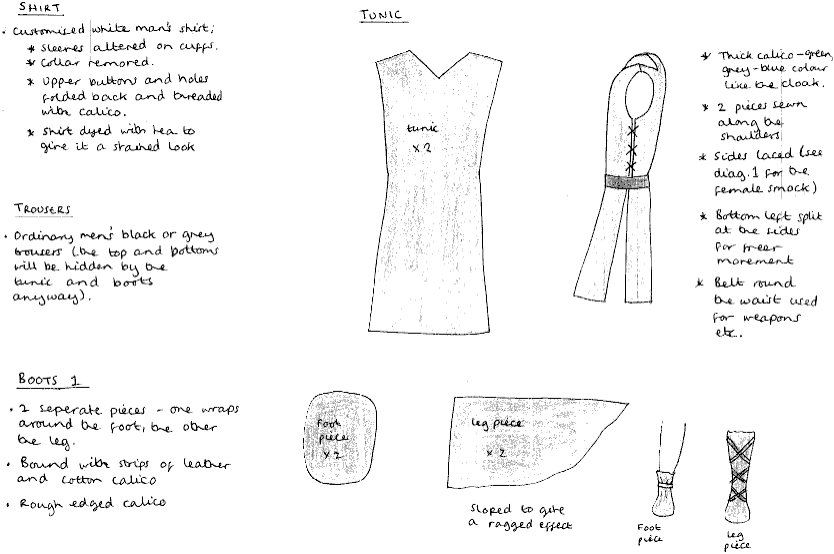 SHIRT
• Customised white man's shirt;
* Sleeves altered on cuffs.
* Collar removed.
* Upper buttons and holes
folded back and threaded
with calico.
* Shirt dyed with tea to
give it a stained look
TROUSERS
• Ordinary men's black or grey
trousers (the top and bottoms
will be hidden by the
tunic and boots
anyway).
TUNIC
tunic
x 2
* Thick calico - green,
grey-blue colour
like the cloak.
* 2 pieces sewn
along the
shoulders
* Sides laced (see
diag. 1 for the
female smock)
* Bottom left split
at the sides
for freer
movement
* Belt round
the waist used
for weapons
etc.
BOOTS 1
• 2 seperate pieces - one wraps
around the foot, the other
the leg.
• Bound with strips of leather
and cotton calico
• Rough edged calico
foot
piece
x 2
leg piece
x 2
Sloped to give
a ragged effect
Foot
piece
leg
piece